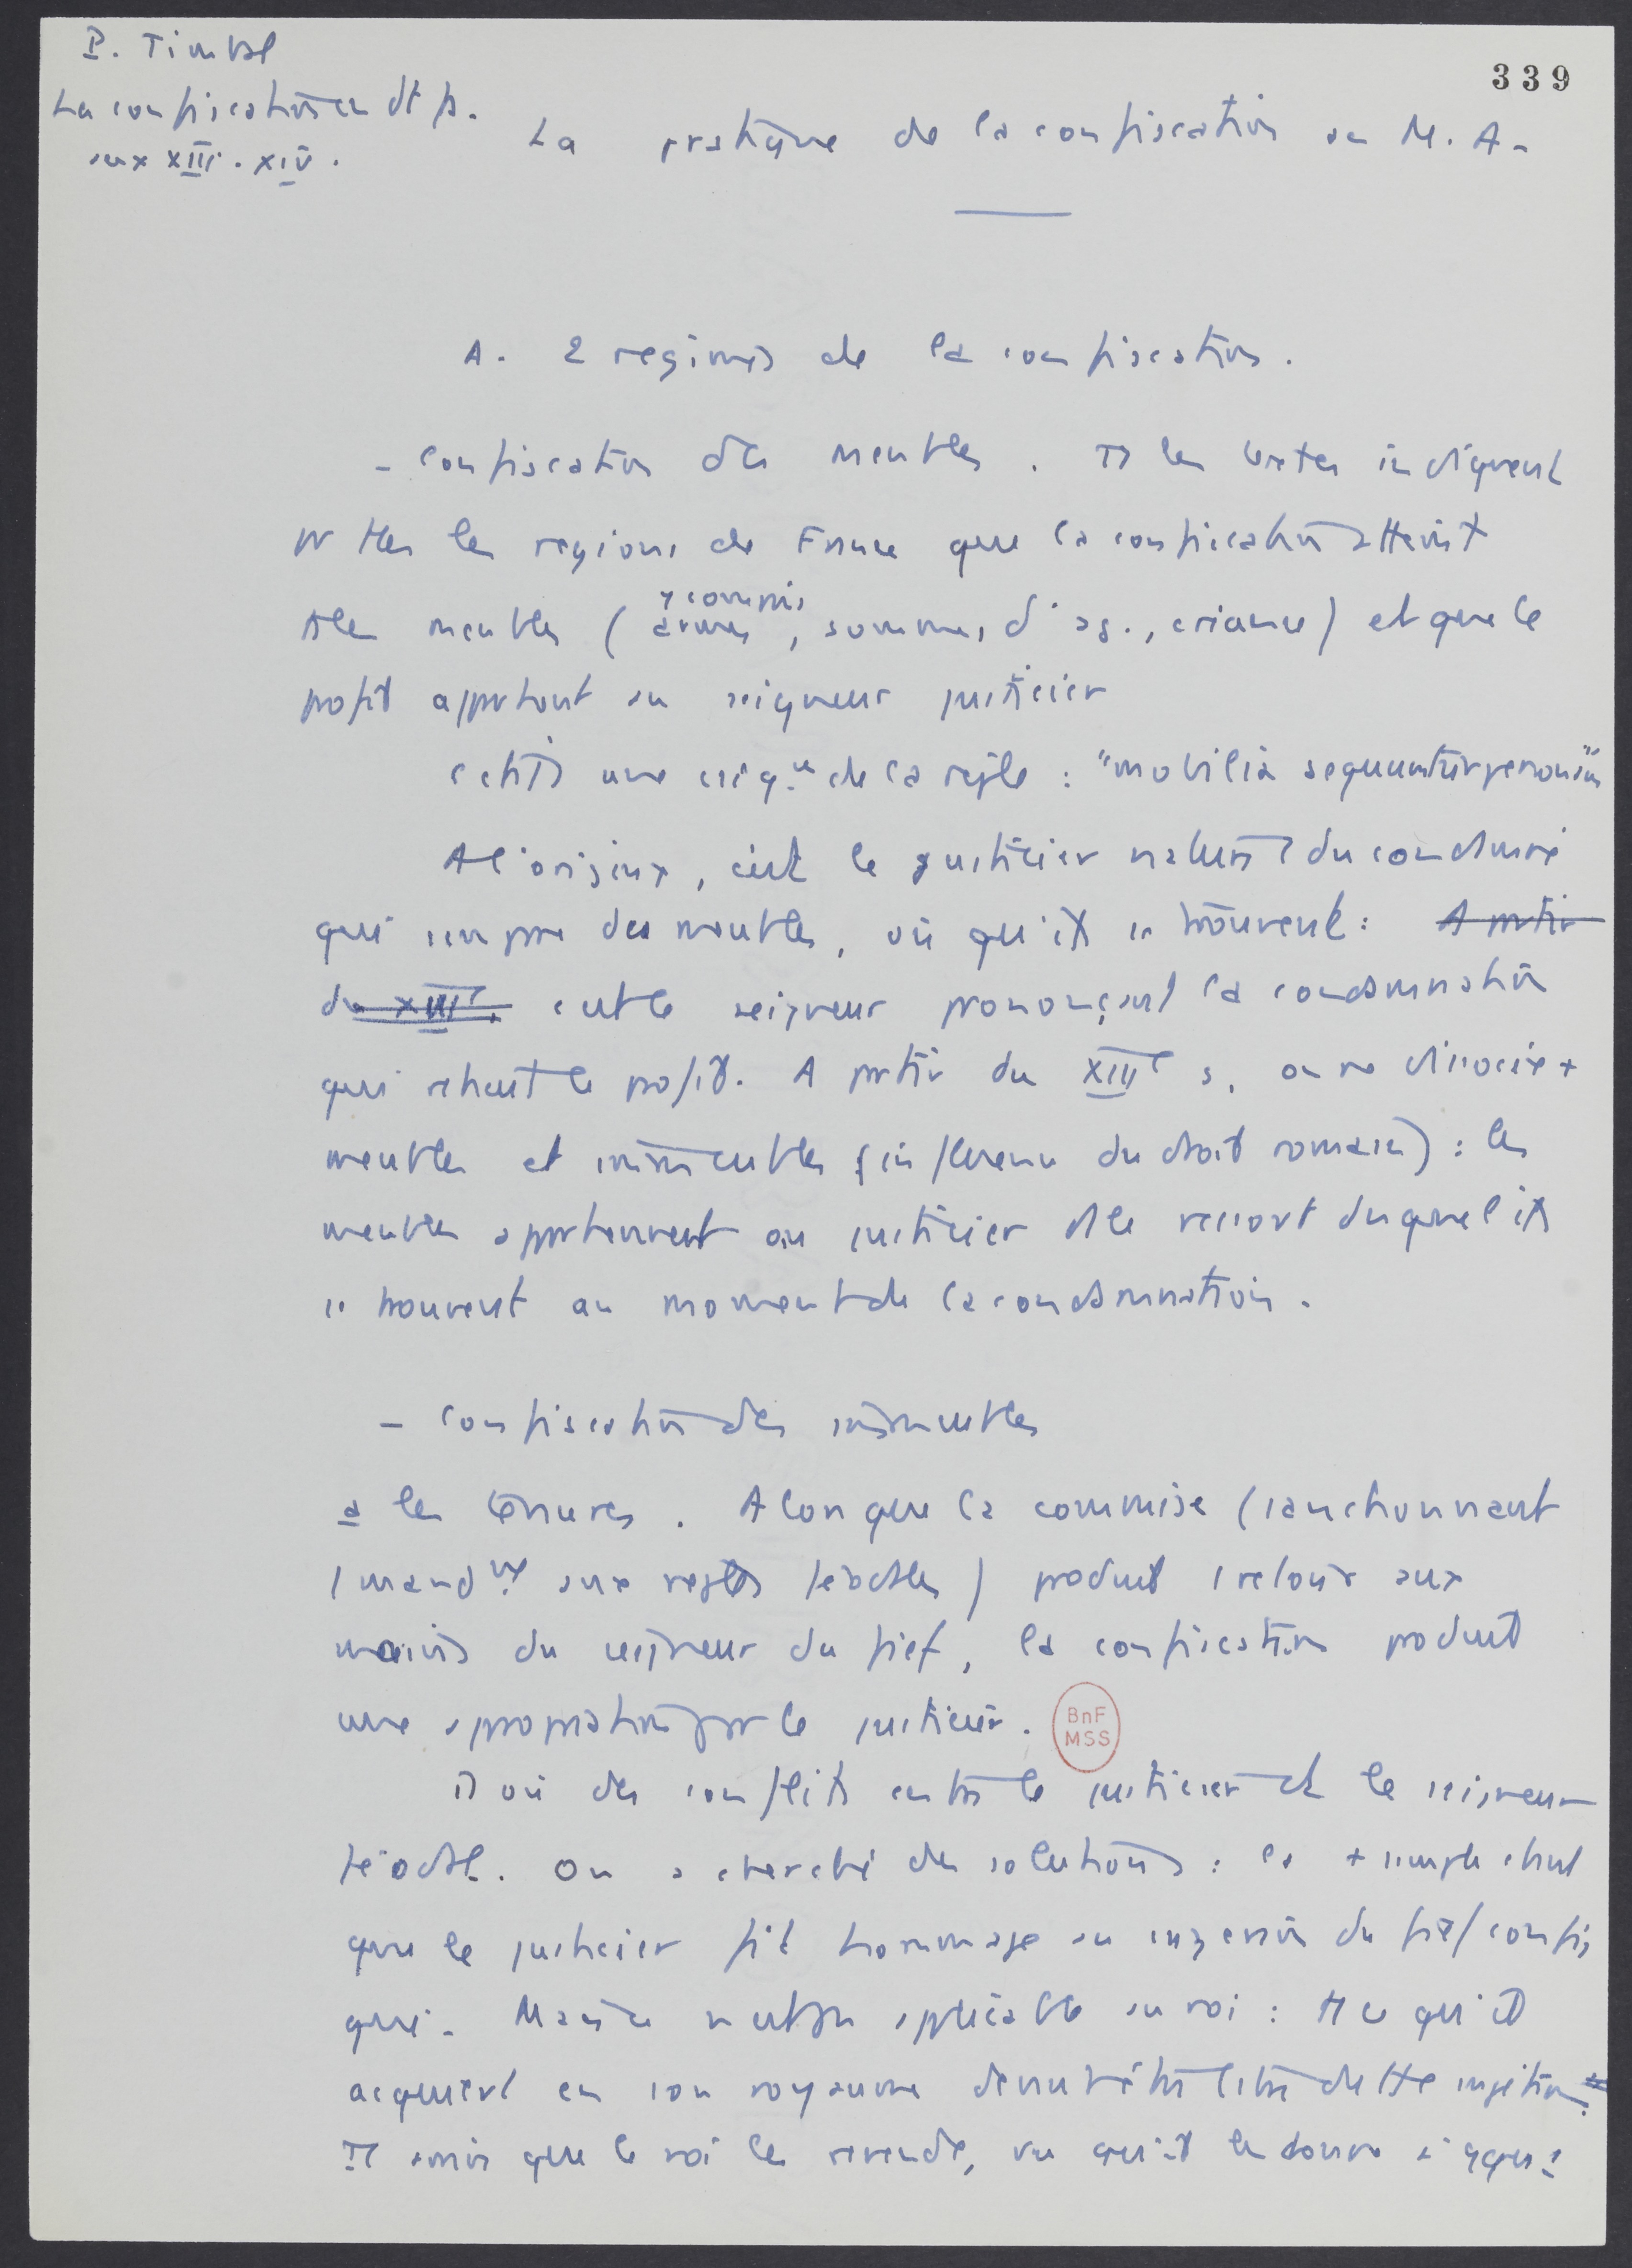 P. Timbal
La confiscation en dt p.
aux XIII. XIV.
339
La pratique de la confiscation au M. A.
A. 2 regimes de la confiscation.
- Confiscation des meubles. Ts les textes indiquent
pr ttes les regions de France que la confiscation atteint
ts les meubles (y compris armes, sommes d'arg., créance) et que le
profit appartient au seigneur justicier
c'est là une cséq.ce de la règle : "mobilia sequuntur personam"
A l'origine, c'est le justicier naturel du condamné
qui s'empare des meubles, où qu'ils se trouvent : A partir
du XIIIe, c'est le seigneur prononçant la condamnation
qui retient le profit. A partir du XIIIe s. on ne dissocie +
meubles et immeubles (influence du droit romain) : les
meubles appartiennent au justicier ds le ressort duquel ils
se trouvent au moment de la condamnation.
- Confiscation des immeubles
a les tenures. Alors que la commise (sanctionnant
1 manq.nt aux regles féodales) produit 1 retour aux
mains du seigneur du fief, la confiscation produit
une apropriation par le justicier.
BnF
MSS
D'où des conflits entre le justicier et le seigneur
féodal. On a cherché des solutions : la + simple était
que le justicier fît hommage au suzerain du fief confis
qué. Mais ce n'est pas applicable au roi : tt ce qu'il
acquiert en son royaume devant être libre de tte sujetion.
Il arrive que le roi les revende, ou qu'il les donne à qqu'1